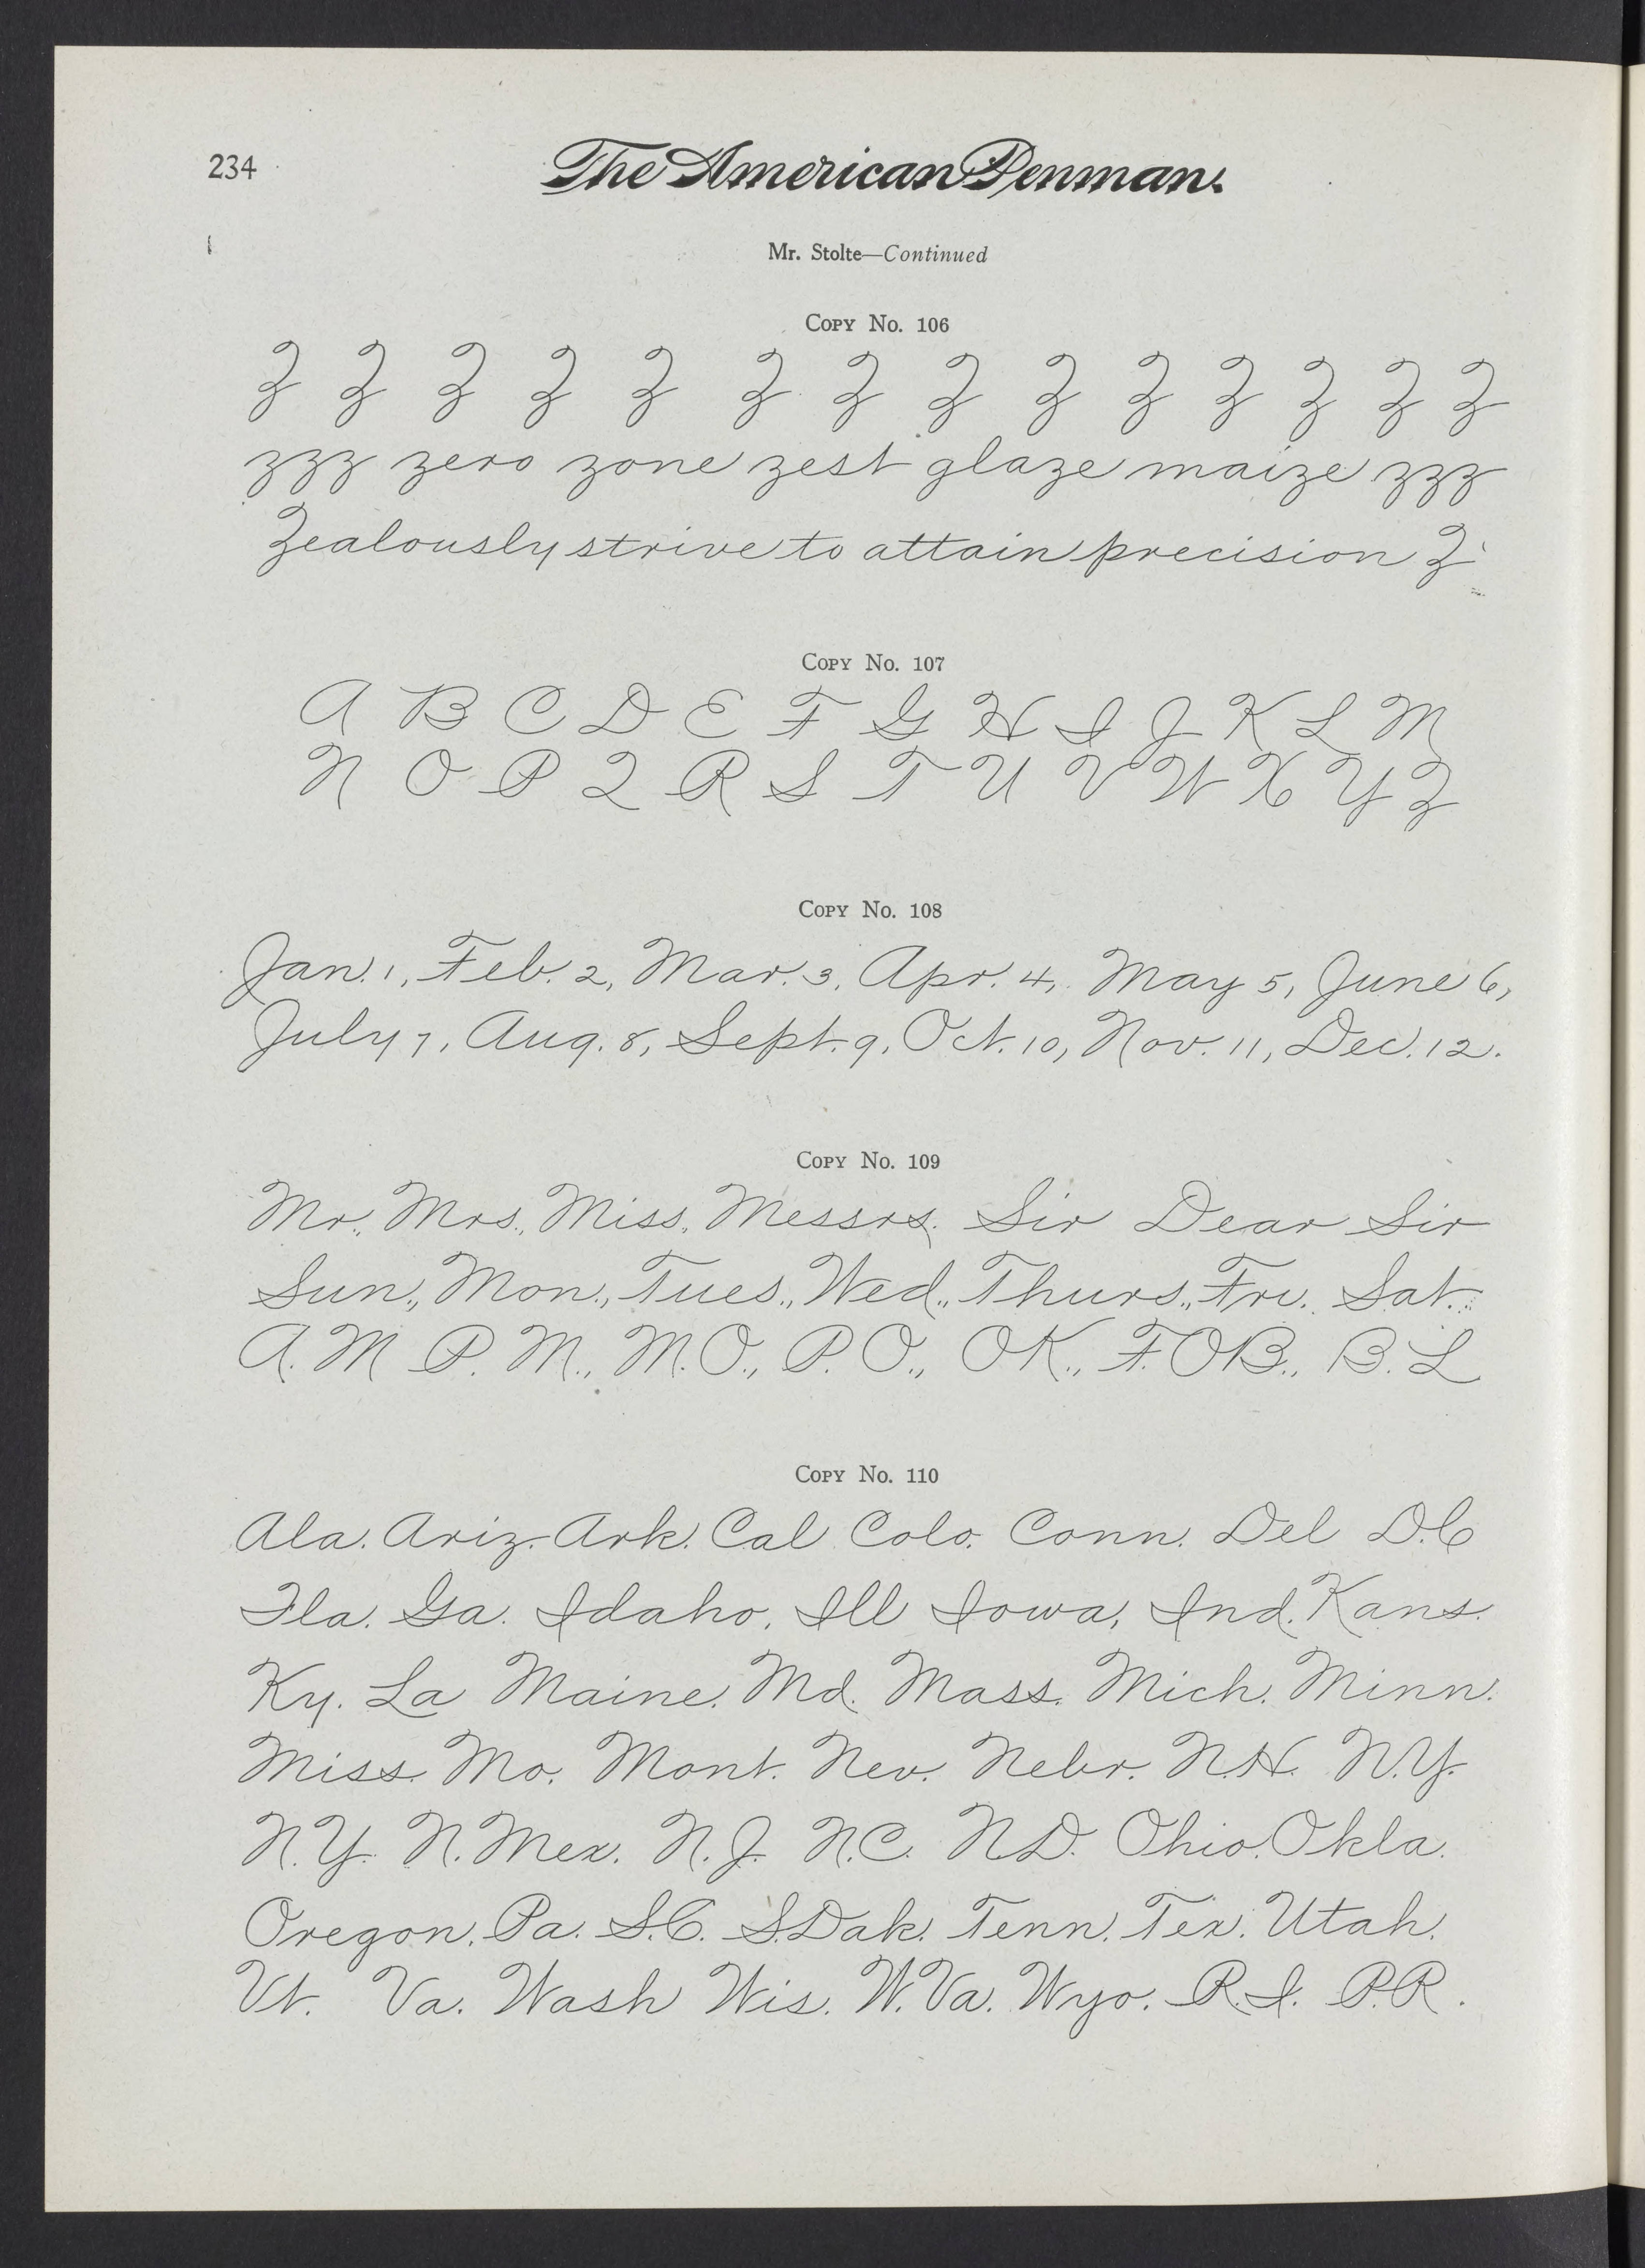 234
The American Penman.
Mr. Stolte—Continued
Copy No. 106
Z Z Z Z Z Z Z Z Z Z Z Z Z Z
zzz zero zone zest glaze maize zzz
Zealously strive to attain precision Z
Copy No. 107
A B C D E F G H I J K L M
N O P Q R S T U V W X Y Z
Copy No. 108
Jan. 1, Feb. 2, Mar. 3, Apr. 4, May 5, June 6,
July 7, Aug. 8, Sept. 9, Oct. 10, Nov. 11, Dec. 12.
Copy No. 109
Mr., Mrs., Miss, Messrs. Sir Dear Sir
Sun., Mon., Tues., Wed., Thurs., Fri. Sat.
A.M P.M., M.O., P.O., OK., F.OB., B.L
Copy No. 110
Ala. Ariz. Ark. Cal Colo. Conn. Del D.C
Fla. Ga. Idaho, Ill Iowa, Ind. Kans.
Ky. La Maine. Md. Mass. Mich. Minn.
Miss. Mo. Mont. Nev. Nebr. N.H. N.Y.
N.Y. N.Mex. N.J. N.C. N.D. Ohio. Okla.
Oregon. Pa. S.C. S.Dak. Tenn. Tex. Utah.
Vt. Va. Wash Wis. W.Va. Wyo. R.I. P.R.